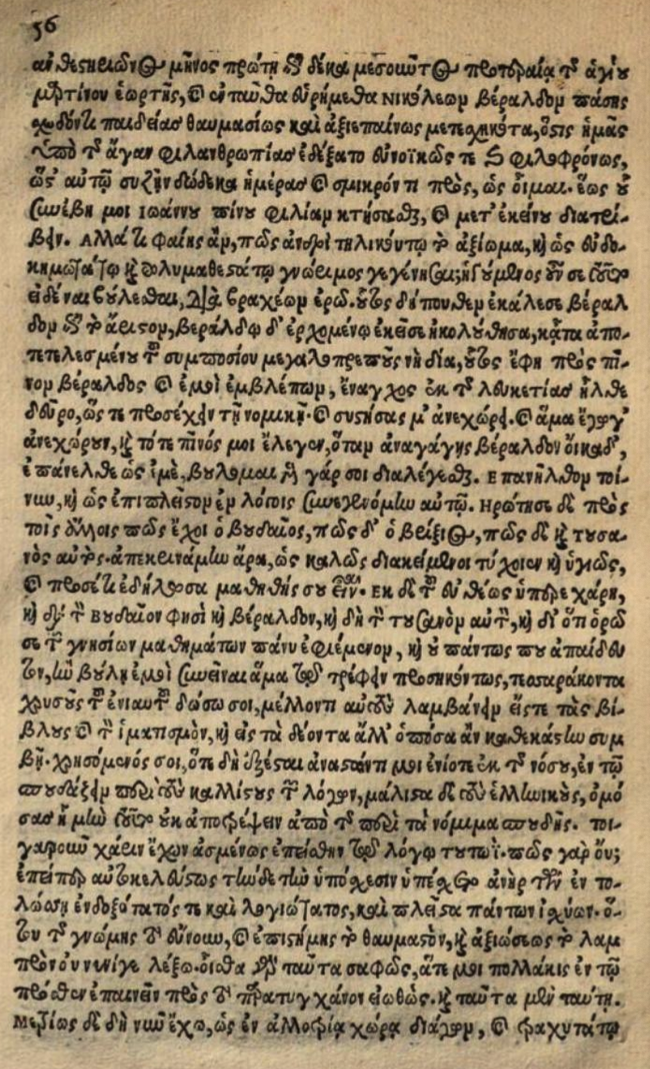 56
ἀνθεστηριῶνος μηνὸς πρώτῃ καὶ δέκα μεσοῦντος προτεραίᾳ τοῦ ἁγίου
μαρτίνου ἑορτῆς, καὶ ἐνταῦθα εὑρήμεθα Νικόλεωμ βέραλδομ πάσης
σχεδόν τι παιδείας θαυμασίως καὶ ἀξιεπαίνως μετεσχηκότα, ὅστις ἡμᾶς
ὑπὸ τῆς ἄγαν φιλανθρωπίας ἐδέξατο εὐνοϊκῶς τε καὶ φιλοφρόνως,
ὥστ' αὐτῷ συζῆν δώδεκα ἡμέρας καὶ σμικρόν τι πρὸς, ὡς οἶμαι. ἕως οὗ
συνέβη μοι ἰωάννου πίνου φιλίαμ κτήσασθαι, καὶ μετ' ἐκείνου διατρί-
βειν. Ἀλλά τι φαίης ἄμ, πῶς ἀνδρὶ τηλικούτῳ τὸ ἀξίωμα, καὶ ὡς εὐδο-
κιμωτάτῳ καὶ πολυμαθεστάτῳ γνώριμος γεγένησαι; ἡγούμενος οὖν σε τοῦτο
εἰδέναι βούλεσθαι, διὰ βραχέωμ ἐρῶ. οὗτος δήπουθεμ ἐκάλεσε βέραλ
δομ ἐπὶ τὸ ἄριστομ, βεράλδῳ δ' ἐρχομένῳ ἐκεῖσε ἠκολούθησα, κᾆτα ἀπο-
τετελεσμένου τοῦ συμποσίου μεγαλοπρεποῦς νὴ δία, οὗτος ἔφη πρὸς πῖ-
νομ βέραλδος καὶ ἐμοὶ ἐμβλέπωμ, ἔναγχος ἐκ τῆς λουκετίας ἦλθε
δεῦρο, ὥστε προσέχειν τῇ νομικῇ. καὶ συστήσας μ' ἀνεχώρει. καὶ ἅμα ἔγωγ'
ἀνεχώρουν, καὶ τότε πῖνός μοι ἔλεγεν, ὅταμ ἀναγάγῃς βέραλδον οἴκαδ',
ἐπάνελθε ὡς ἐμὲ, βούλομαι γάρ σοι διαλέγεσθαι. Επανῆλθομ τοί-
νυν, καὶ ὡς ἐπιπλεῖστομ ἐμ λόγοις συνεγενόμην αὐτῷ. Ηρώτησε δὲ πρὸς
τοῖς ἄλλοις πῶς ἔχοι ὁ βουδαῖος, πῶς δ' ὁ βείξιος, πῶς δὲ καὶ τυσα-
νὸς αὐτός. ἀπεκρινάμην ἄρα, ὡς καλῶς διακείμενοι τύχοιεν καὶ ὑγιῶς,
καὶ προσέτι ἐδήλωσα μαθητής σου εἶναι. Εκ δὲ τοῦ εὐθέως ὑπερεχάρη,
καὶ διὰ τὸν Βουδαῖον φησὶ καὶ βέραλδον, καὶ δὴ τὸν τουσανὸμ αὐτὸν, καὶ δι' ὅτι ὁρῶ
σε τῶν γνησίων μαθημάτων πάνυ ἐφιέμενομ, καὶ οὐ πάντως που ἀπαίδευ
τον, ἢν βούλῃ ἐμοὶ συνεῖναι ἅμα τῷ τρέφειν προσηκόντως, τεσσαράκοντα
χρυσοῦς τοῦ ἐνιαυτοῦ δώσω σοι, μέλλοντι αὐτοὺς λαμβάνειμ εἴς τε τὰς βί-
βλους καὶ τὸν ἱματισμὸν, καὶ εἰς τὰ δέοντα ἄλλ' ὁπόσα ἂν καθεκάστην συμ
βῇ. χρησόμενός σοι, ὅτε δὴ ἐξέσται ἀναστάντι μοι ἐνίοτε ἐκ τῆς νόσου, ἐν τῷ
σπουδάζειμ περὶ τοὺς καλλίστους τῶν λόγων, μάλιστα δὲ τοὺς ἑλληνικοὺς, ὀμό
σας ἦ μὴν τοῦτο οὐκ ἀποτρέψειν ἀπὸ τῆς περὶ τὰ νόμιμα σπουδῆς. τοι-
γαροῦν χάριν ἔχων ἀσμένως ἐπείσθην τῷ λόγῳ τουτωΐ. πῶς γὰρ οὔ;
ἐπείπερ αὐτοκελεύστως τήνδε τὴν ὑπόσχεσιν ὑπέσχετο ἀνὴρ τῶν ἐν το-
λώσῃ ἐνδοξότατός τε καὶ λογιώτατος, καὶ πλεῖστα πάντων ἰσχύων. ὅ-
του τῆς γνώμης τὸ εὔνουν, καὶ ἐπιστήμης τὸ θαυμαστὸν, καὶ ἀξιώσεως τὸ λαμ
πρὸν οὐ νυνίγε λέξω. οἶσθα γὰρ ταῦτα σαφῶς, ἅτε μοι πολλάκις ἐν τῷ
πρόσθεν ἐπαινεῖν πρὸς τὸ παρατυγχάνον εἰωθὼς. καὶ ταῦτα μὲν ταύτῃ.
Μετρίως δὲ δὴ νῦν ἔχω, ὡς ἐν ἀλλοτρίᾳ χώρᾳ διάγωμ, καὶ τραχυτάτῳ